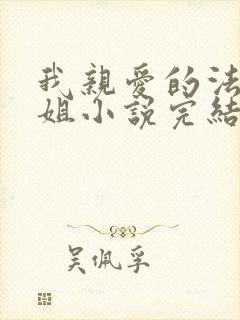 我親愛的法
姐小說完結
吳佩孚